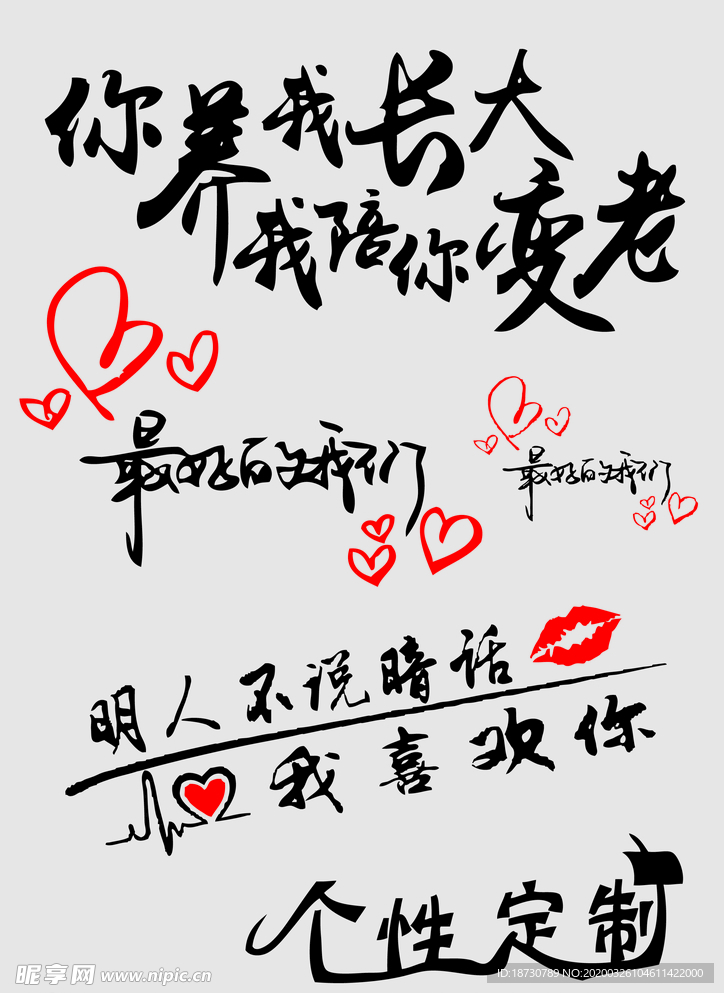 你养我长大
我陪你变老
最好的我们
最好的我们
明人不说暗话
我喜欢你
个性定制
昵享网 www.nipic.cn
ID:18730789 NO:20200326104611422000